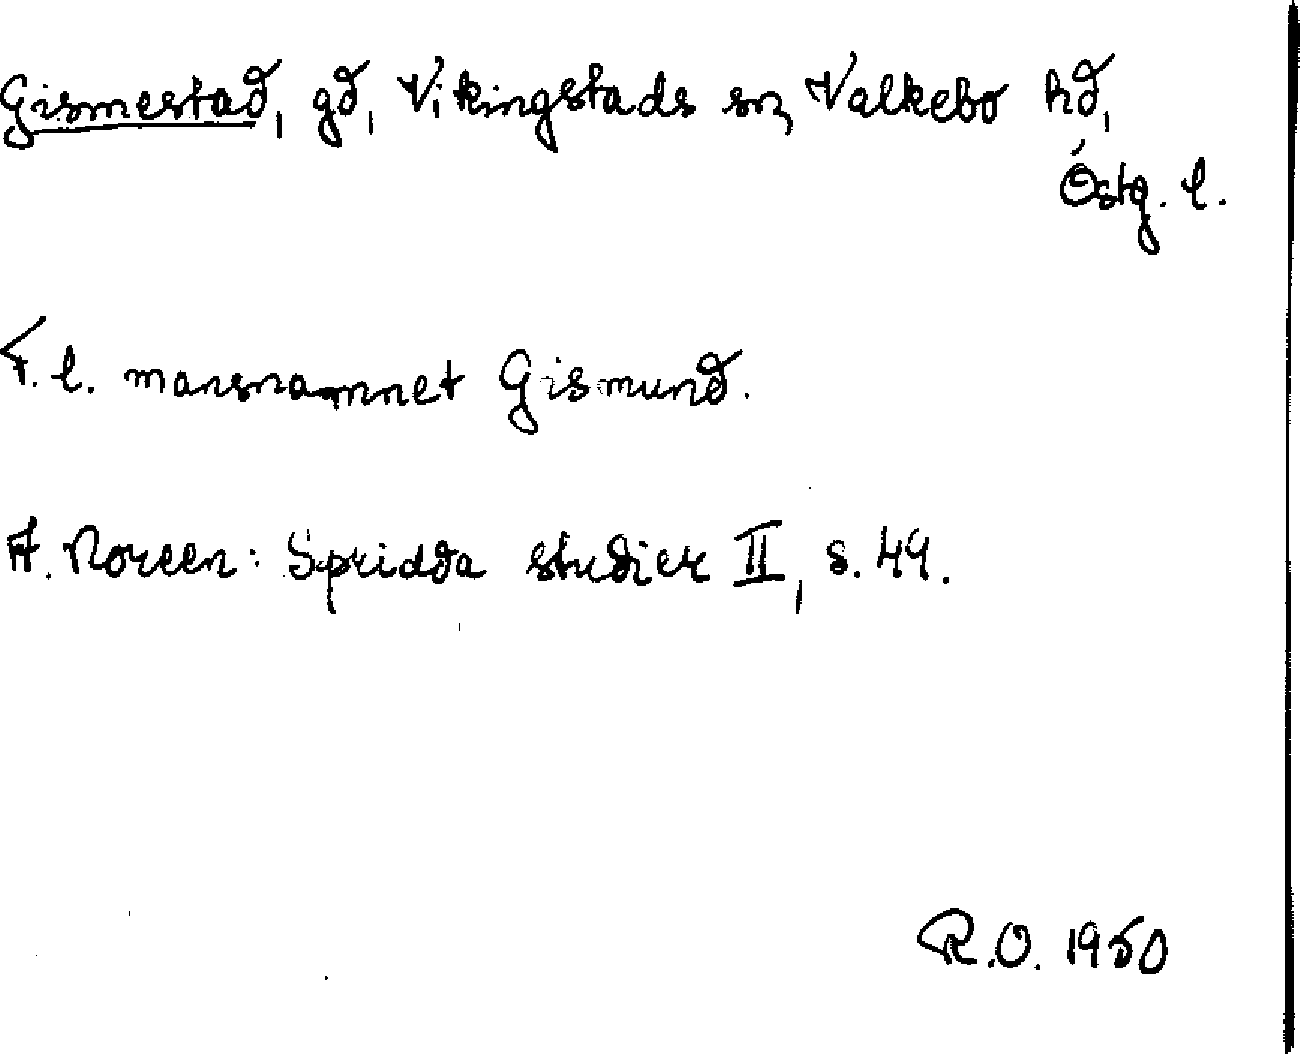 Gismestad, gd, Vikingstads sn, Valkebo hd,
Östg. l.
F. l. mansnamnet Gismund.
A. Noreen: Spridda studier II, s. 49.
R.O. 1950